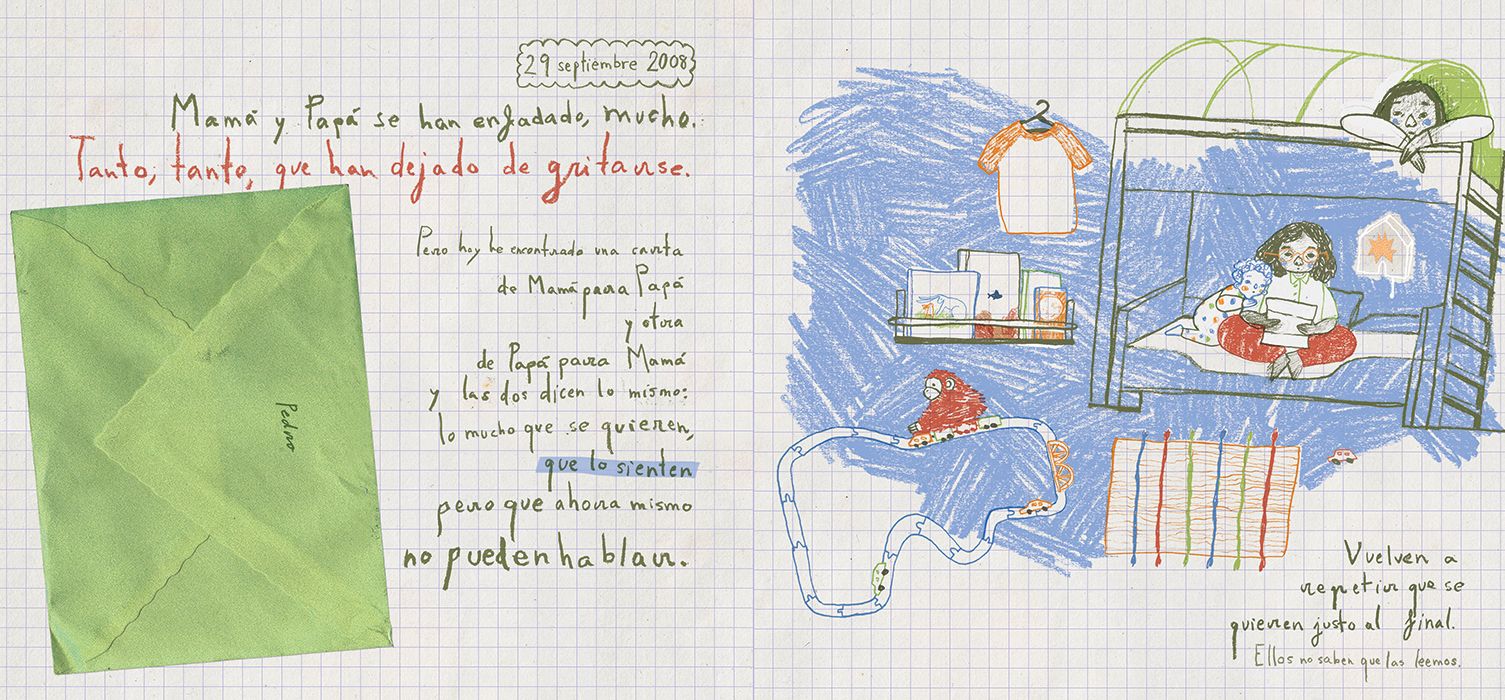 29 septiembre 2008
Mamá y Papá se han enfadado, mucho.
Tanto, tanto, que han dejado de gritarse.
Pero hoy he encontrado una carta
de Mamá para Papá
y otra
de Papá para Mamá
y las dos dicen lo mismo:
lo mucho que se quieren,
que lo sienten
pero que ahora mismo
no pueden hablar.
Pedro
Vuelven a
repetir que se
quieren justo al final.
Ellos no saben que las leemos.